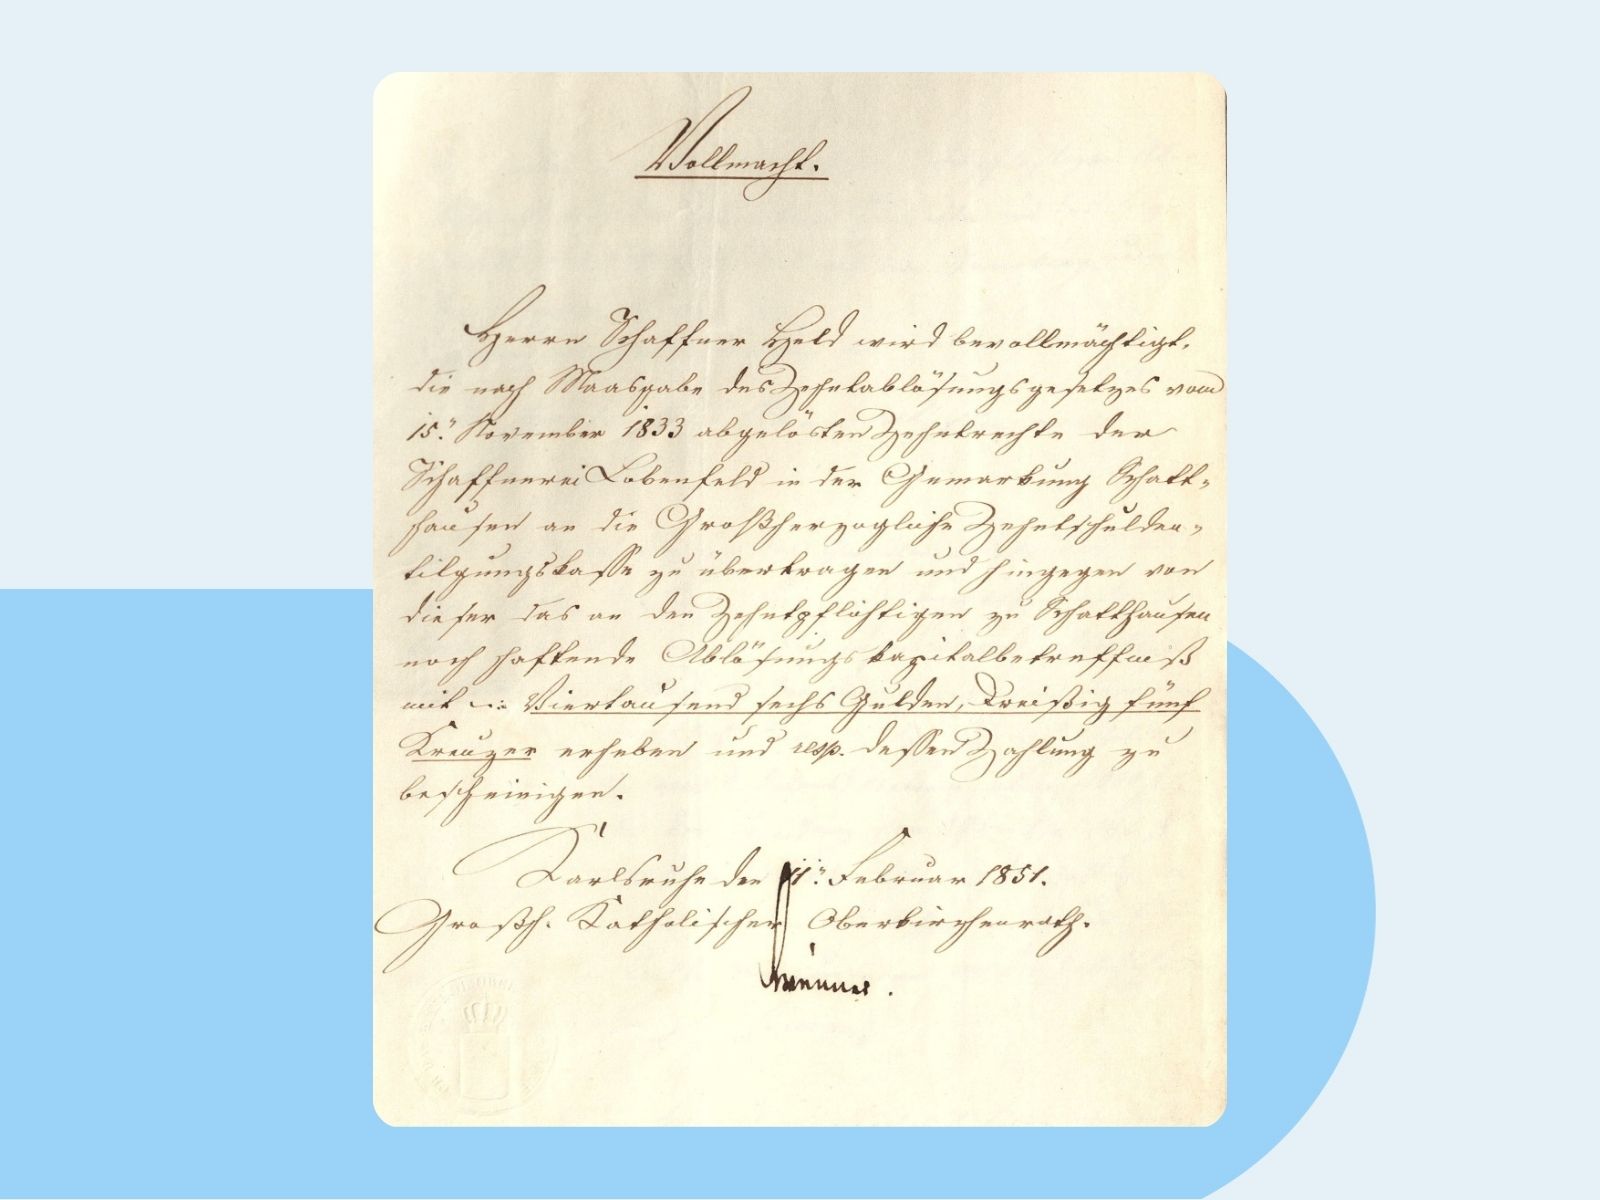 Vollmacht.
Herrn Schaffner Held wird bevollmächtigt,
die nach Maasgabe des Zehntablösungsgesetzes vom
15. November 1833 abgelösten Zehntrechte der
Schaffnerei Lobenfeld in der Gemarkung Schatt-
hausen an die Großherzogliche Zehntschulden-
tilgungskasse zu übertragen und hingegen von
dieser das an den Zehntpflichtigen zu Schatthausen
noch haftende Ablösungskapitalbetreffniß
mit Viertausend sechs Gulden, Dreißig fünf
Kreuzer erheben und resp. dessen Zahlung zu
bescheinigen.
Karlsruhe den 11. Februar 1851.
Großh. Katholischer Oberkirchenrath.